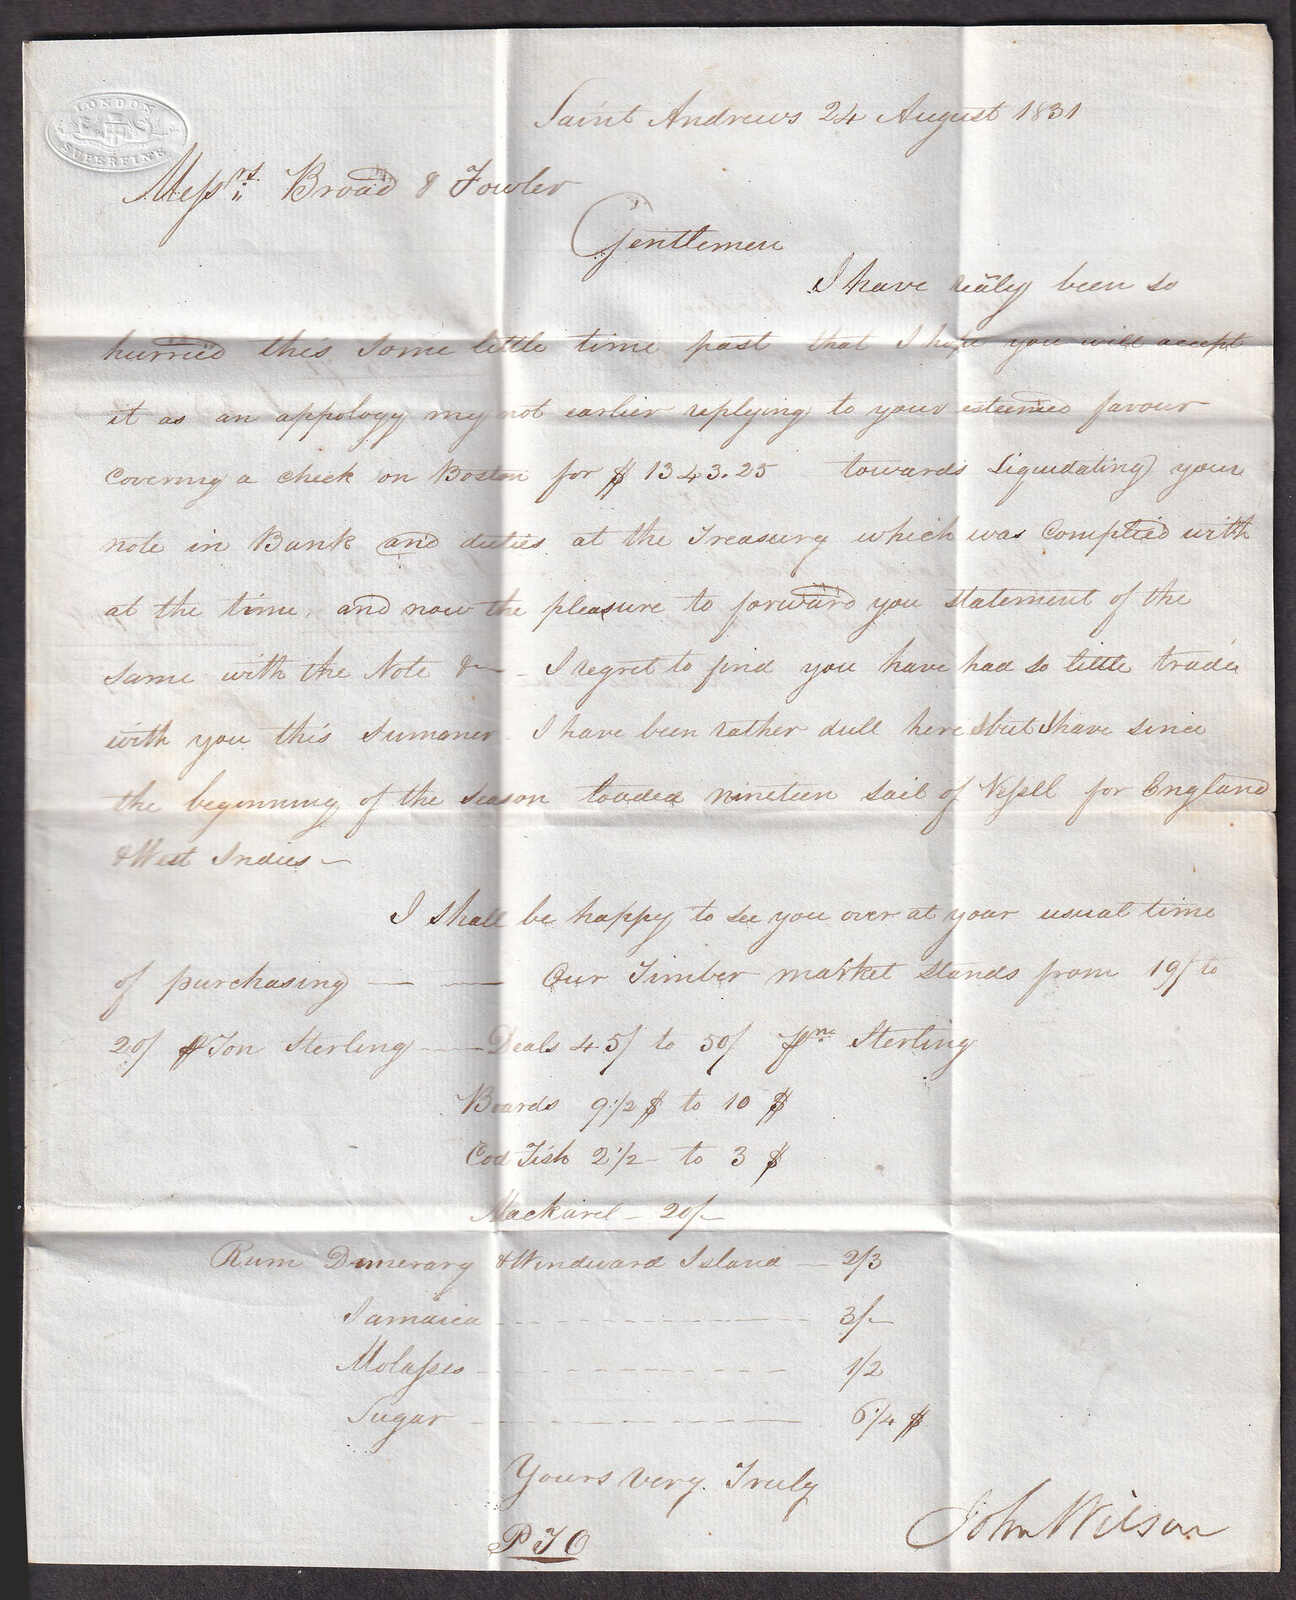 LONDON
SUPERFINE
Saint Andrews 24 August 1831
Messrs. Broad & Fowler
Gentlemen
I have realey been so
hurried this some little time past that I hope you will accept
it as an appology my not earlier replying to your esteemed favour
covering a check on Boston for $1343.25 towards Liquidating your
note in Bank and duties at the Treasury which was Complied with
at the time, and now the pleasure to forward you statement of the
same with the Note &c - I regret to find you have had so little trade
with you this Summer I have been rather dull here but I have since
the beginning of the season loaded nineteen sail of Vessell for England
& West Indies -
I shall be happy to see you over at your usual time
of purchasing — — Our Timber market stands from 19/ to
20/ ⅌ Ton Sterling — Deals 45/ to 50/ Sterling
Boards 9 1/2 $ to 10 $
Cod Fish 2 1/2 - to 3 $
Mackarel - 20/-
Rum Dimerary & Windward Island - 2/3
Jamaica - - - - - - - - - - - - 3/-
Molasses - - - - - - - - - - - - 1/2
Sugar - - - - - - - - - - - - 6 1/4 $
Yours very Truly
John Wilson
P T O